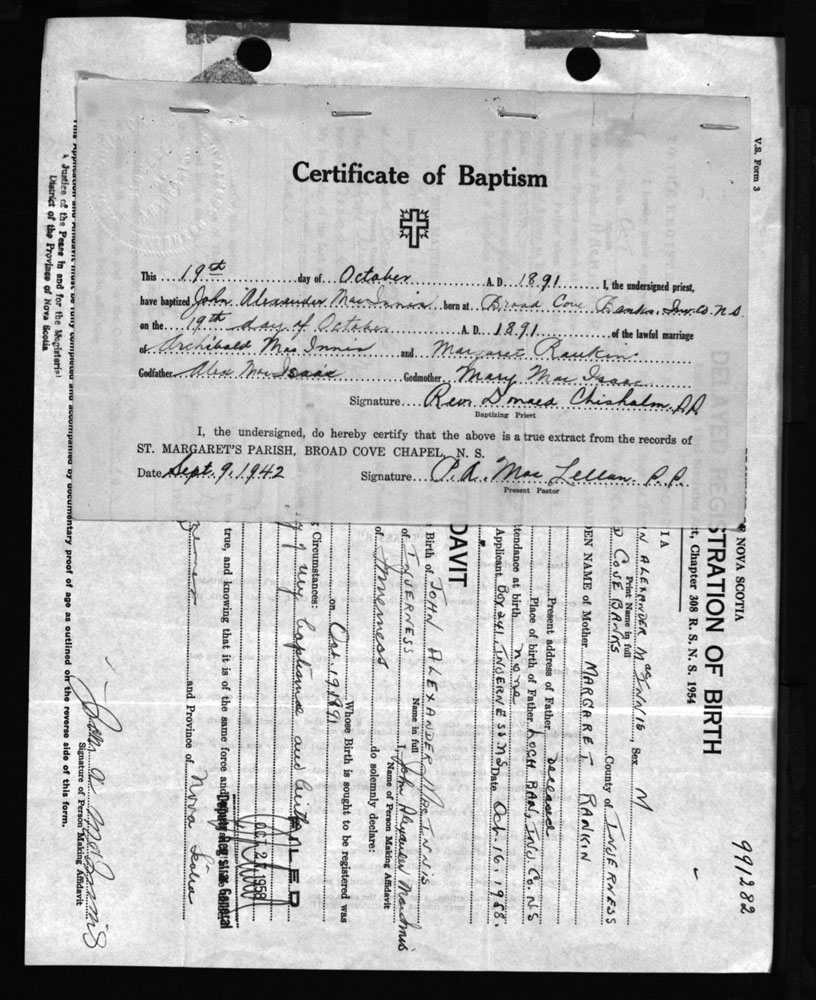 Certificate of Baptism
This 19th day of October A.D. 1891 I, the undersigned priest,
have baptized John Alexander MacInnis born at Broad Cove Banks, Inv. Co. N.S.
on the 19th day of October A.D. 1891 of the lawful marriage
of Archibald MacInnis and Margaret Rankin
Godfather Alex MacIsaac Godmother Mary MacIsaac
Signature Rev. Donald Chisholm, P.P.
Baptizing Priest
I, the undersigned, do hereby certify that the above is a true extract from the records of
ST. MARGARET'S PARISH, BROAD COVE CHAPEL, N. S.
Date Sept. 9, 1942 Signature P.A. MacLellan P.P.
Present Pastor
V.S. Form 3
991282
NOVA SCOTIA
STRATION OF BIRTH
t, Chapter 308 R. S. N. S. 1954
N ALEXANDER MacINNIS, Sex M
Print Name in full
D COVE BANKS County of INVERNESS
DEN NAME of Mother MARGARET RANKIN
Present address of Father deceased
Place of birth of Father LOCH BAN, INV. CO. N.S
tendance at birth none
Applicant Box 241, INVERNESS N.S Date Oct. 16, 1958.
DAVIT
Birth of JOHN ALEXANDER MacINNIS
Name in full
of INVERNESS I, John Alexander MacInnis
Name of Person Making Affidavit
of Inverness do solemnly declare:
Whose Birth is sought to be registered was
on Oct. 19, 1891
g Circumstances:
of my baptisme and birth
FILED
OCT 2 1958
Deputy Registrar General
true, and knowing that it is of the same force and
and Province of Nova Scotia
John A MacInnis
Signature of Person Making Affidavit
This Application and Affidavit must be fully completed and accompanied by documentary proof of age as outlined on the reverse side of this form.
a Justice of the Peace in and for the Magisterial
District of the Province of Nova Scotia